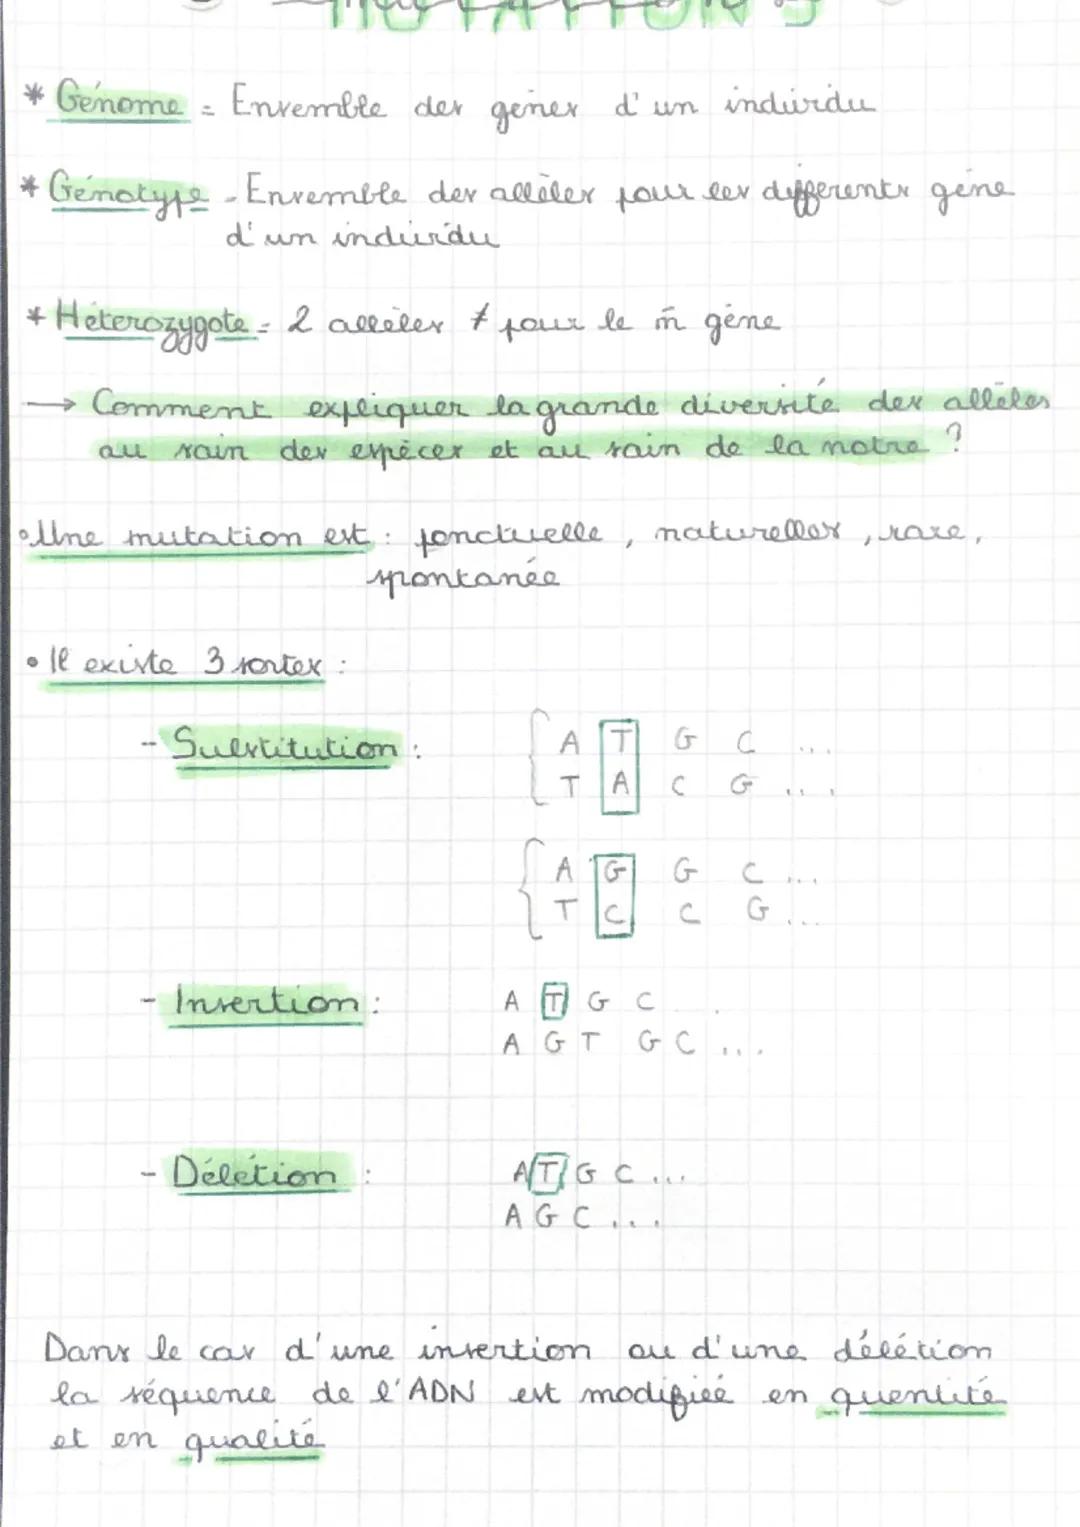 MUTATIONS
* Génome = Ensemble des gènes d'un individu
* Génotype = Ensemble des allèles pour les differents gène
d'un individu
* Hétérozygote = 2 allèles ≠ pour le m̂ gène
→ Comment expliquer la grande diversité des allèles
au sein des espèces et au sein de la notre ?
• Une mutation est : ponctuelle, naturelles, rare,
spontanée
• Il existe 3 sortes :
- Substitution :
A T G C ...
T A C G ....
A G G C ...
T C C G ...
- Insertion :
A T G C . .
A G T G C ...
- Délétion :
A T G C ...
A G C ...
Dans le cas d'une insertion ou d'une délétion
la séquence de l'ADN est modifieé en quentité
et en qualité